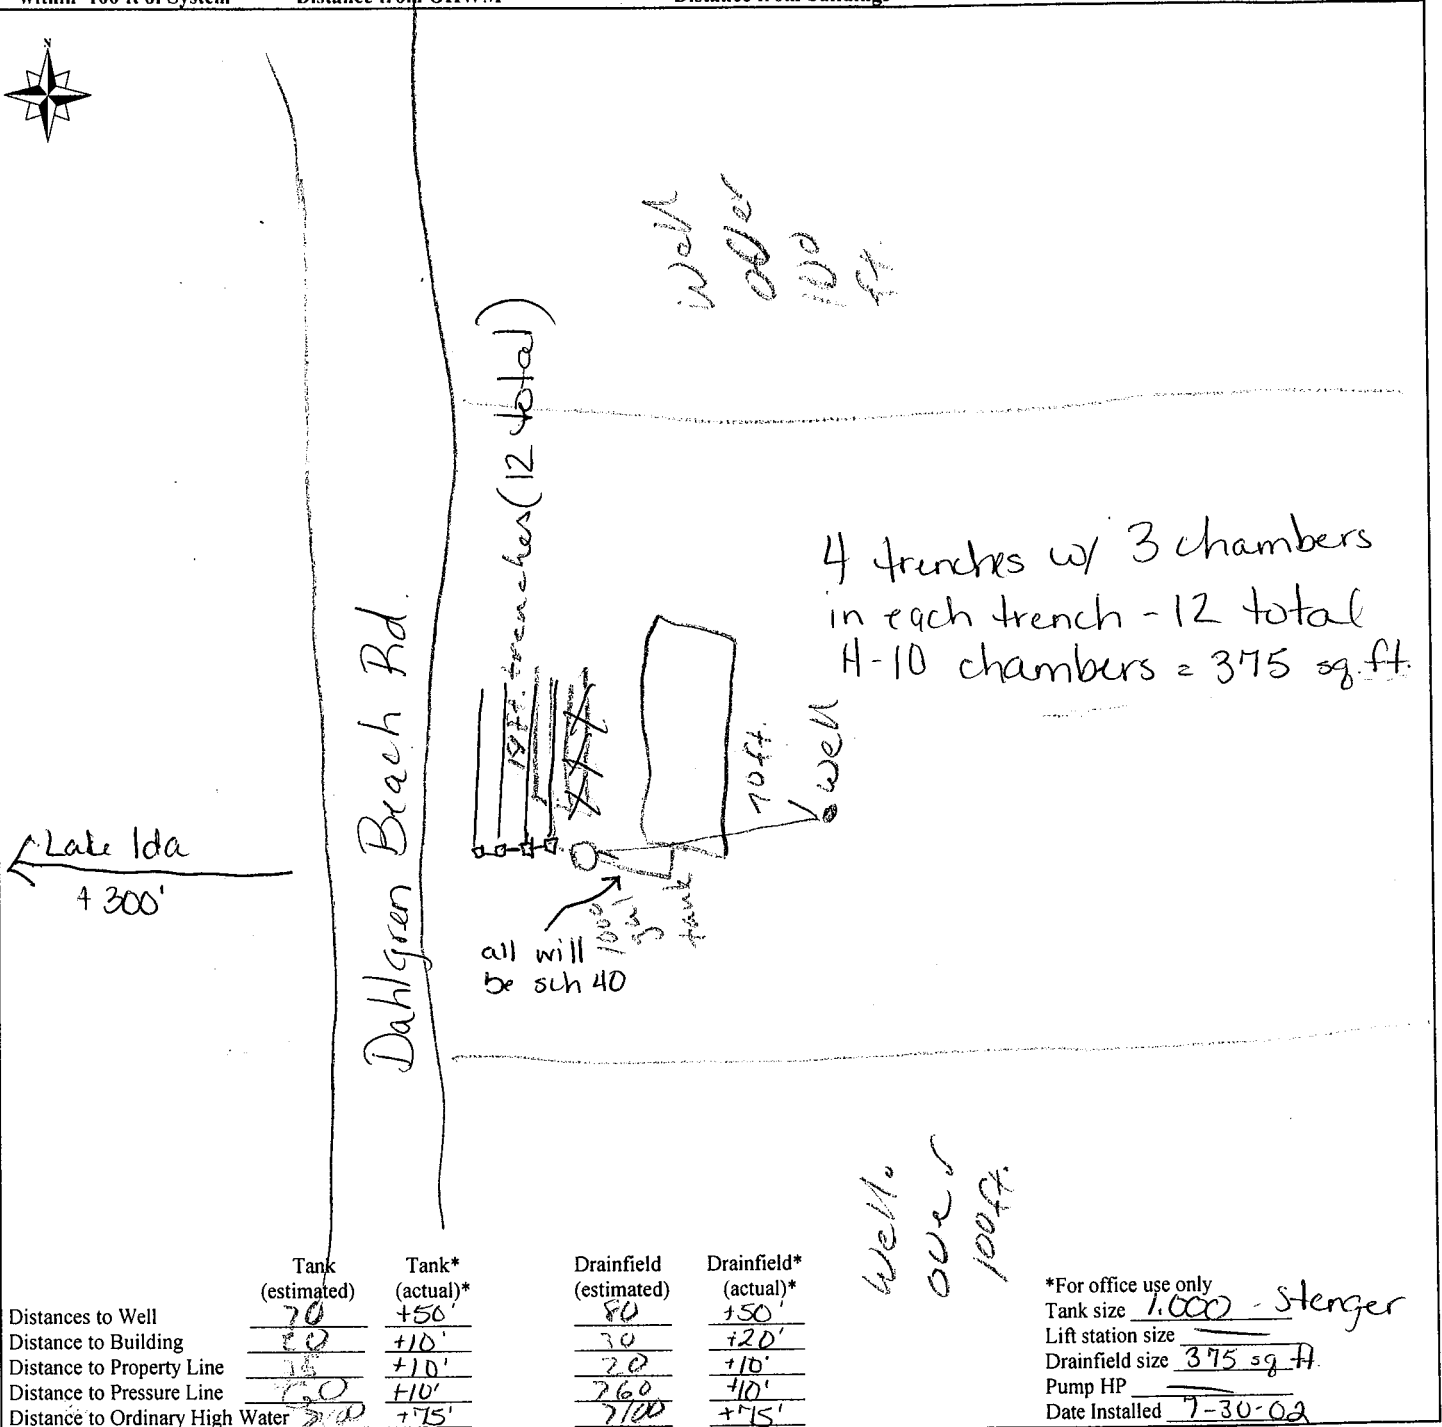 within 100 ft of System Distance from OHWM Distance from buildings
N
well
over
100
ft.
19ft. trenches (12 total)
4 trenches w/ 3 chambers
in each trench - 12 total
H-10 chambers = 375 sq.ft.
Dahlgren Beach Rd.
70ft.
well
Lake Ida
+ 300'
1000
gal
tank
all will
be sch 40
Well.
over
100ft.
Tank (estimated) Tank* (actual)* Drainfield (estimated) Drainfield* (actual)*
Distances to Well 70 +50' 80 +50'
Distance to Building +10' 30 +20'
Distance to Property Line +10' 20 +10'
Distance to Pressure Line +10' +10'
Distance to Ordinary High Water +75' +75'
*For office use only
Tank size 1,000 - Stenger
Lift station size
Drainfield size 375 sq ft.
Pump HP
Date Installed 7-30-02